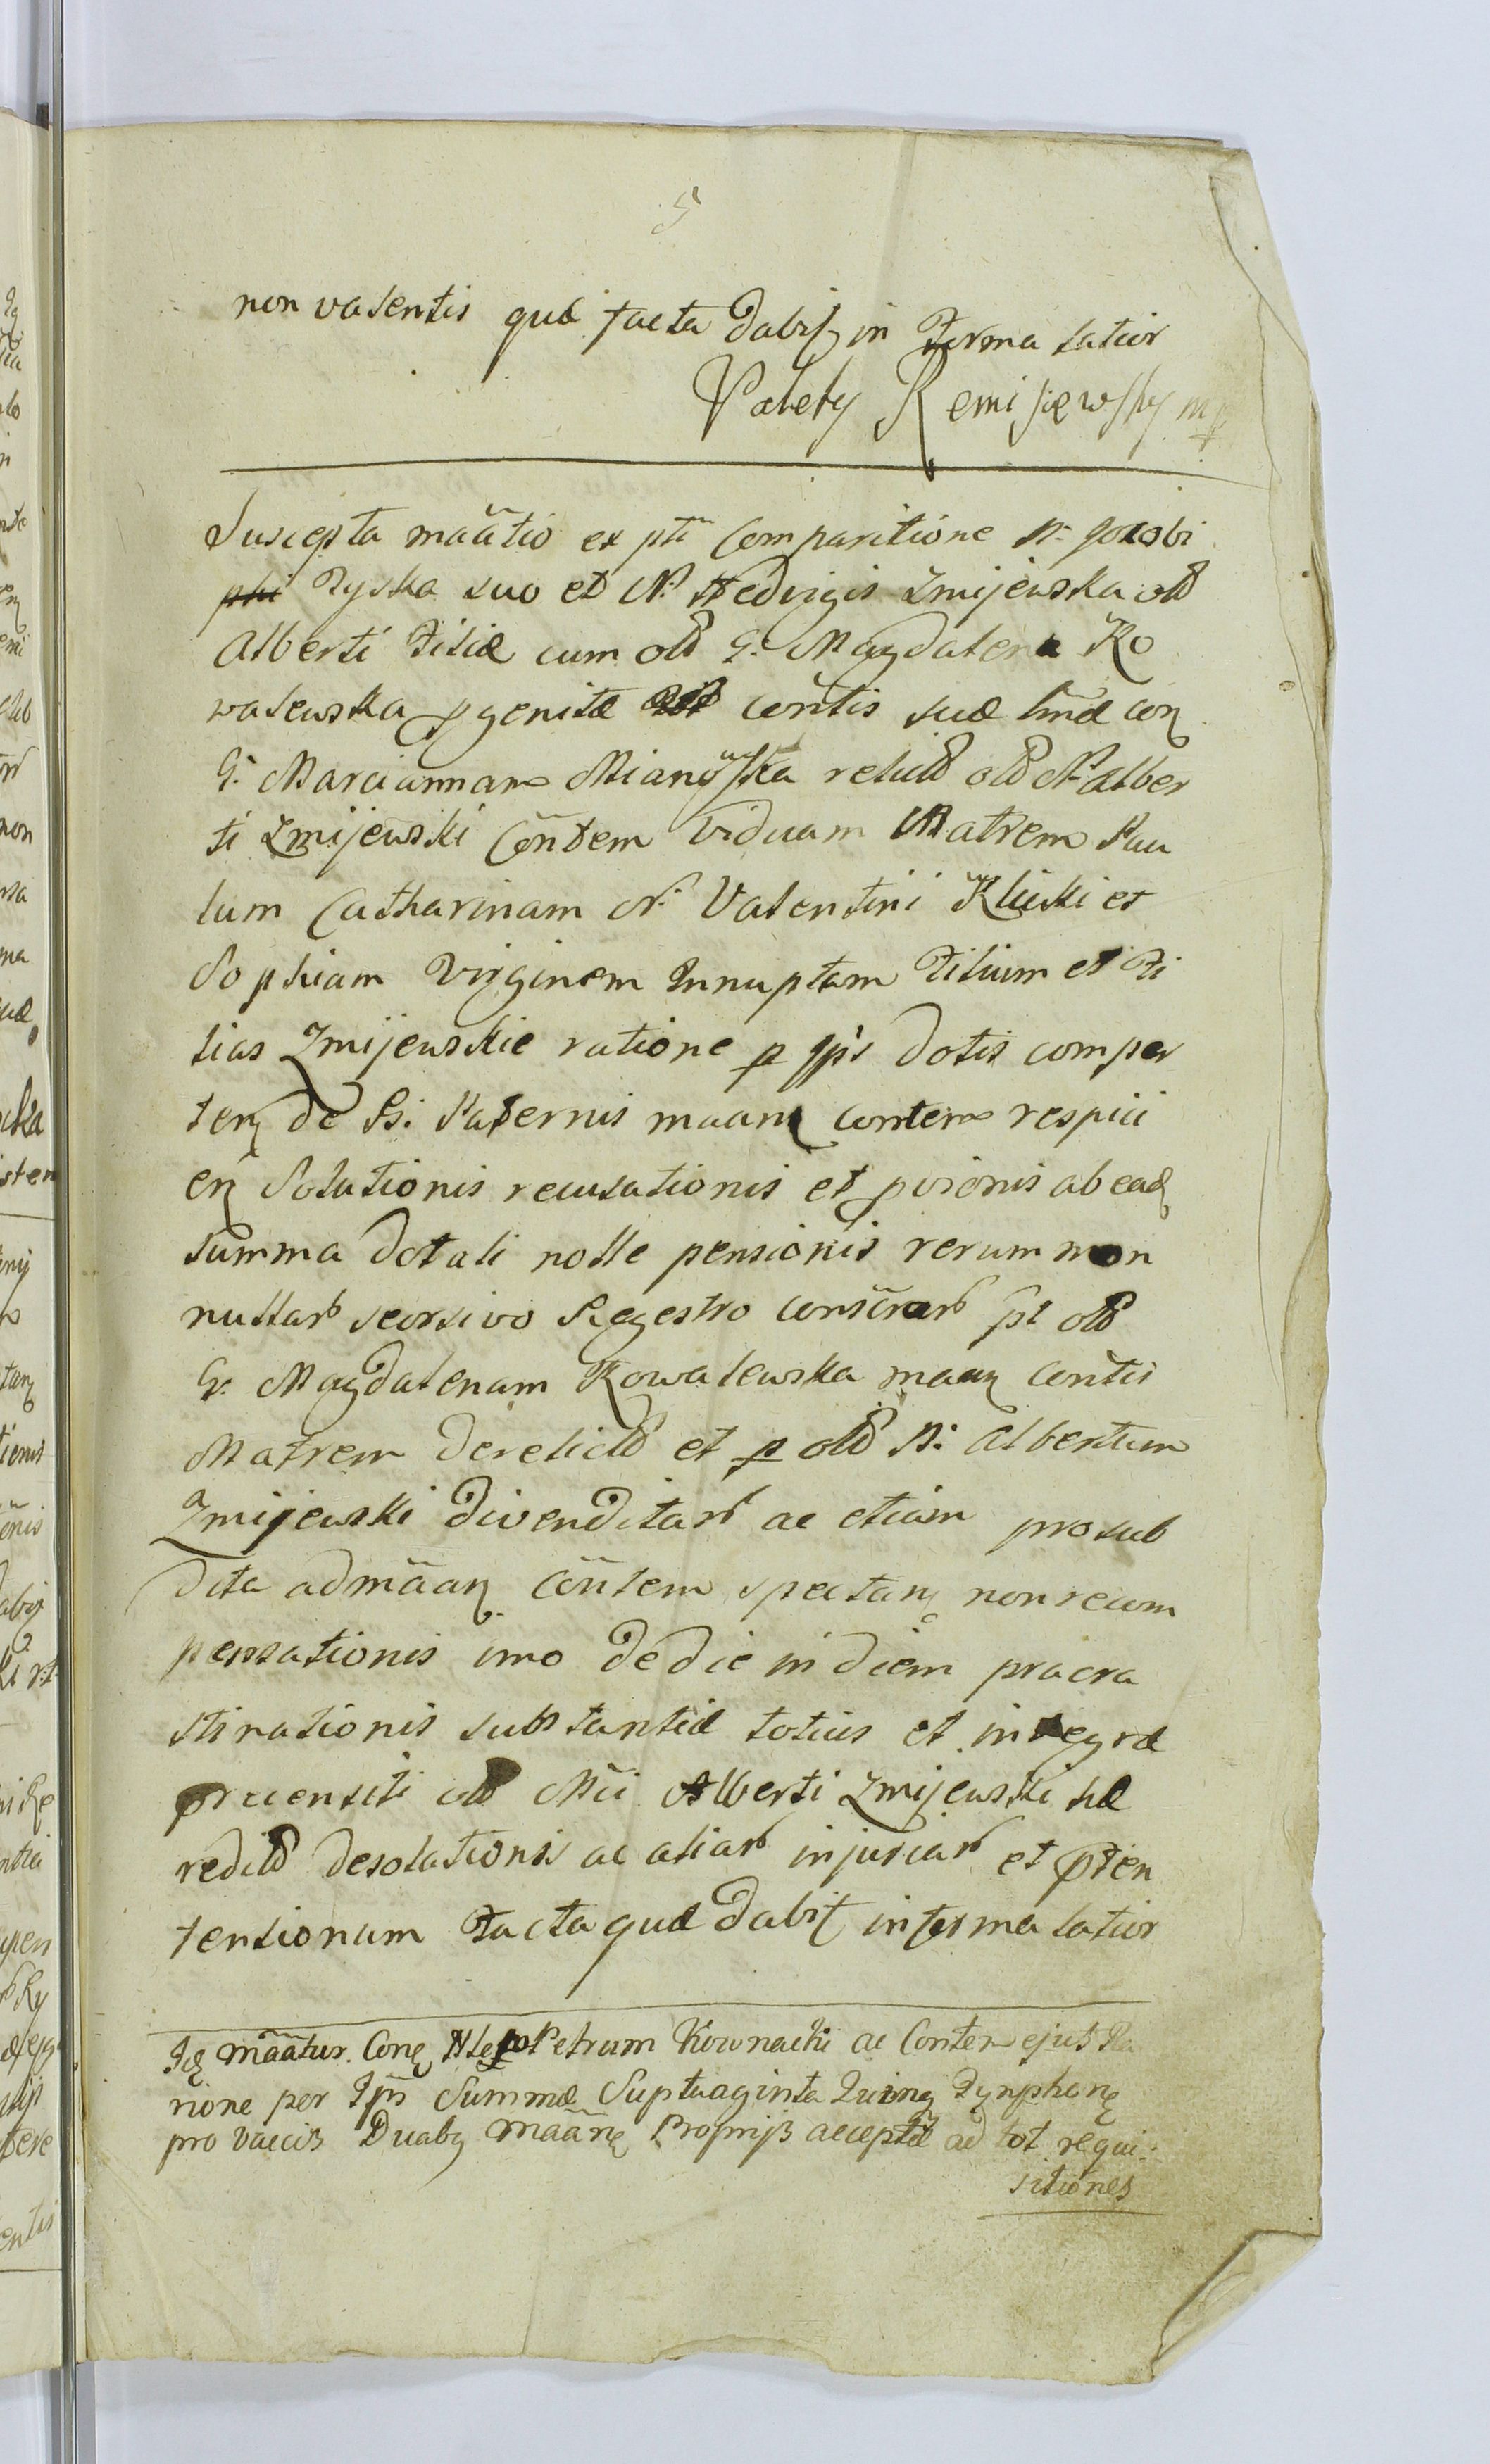 5
non valentis quæ facta dabit in Forma latior
Walenty Remisiewsky mp
Suscepta mããtio ex pti Comparitione N. Jacobi
Zyska suo et N. Hedvigis Zmijewska olb
Alberti Filiæ cum olb G. Magdalena Ko
walewska pgenitæ contis suæ nõe con
G. Mariannam Mianowska relictb olb N. Alber
ti Zmijewski Cõntem Viduam Matrem Pau
lum Catharinam N. Valentini Klicki et
Sophiam Virginem Innuptam Filium et Fi
lias Zmijewskie ratione p ipis dotis comper
ten de B. Paternis maann contem respici
en Solutionis recusationis et provionis ab ead
summa dotali nolle pensionis rerum non
nullarb seorsivo Regestro conscrarb pt olb
G. Magdalenam Kowalewska maan Contis
Matrem derelictb et p olb N. Albertum
Zmijewski divenditarb ac etiam pro sub
dita ad mããn Cõntem spectan non recom
pensationis imo de die in diem procra
stinationis substantiæ totius et integræ
præcensiti olb Mci Alberti Zmijewski hæ
redb desolationis ac aliarb injuriarb et prten
tensionum Facta quæ dabit in forma latior
Idę mããtur. Conę Petrum Kownacki ac Contem ejus Ra
tione per Ipn Summæ Suptuaginta Quinq Tynphonę
pro vaccis Duaby mããnę Proprijs acceptæ ad tot requi:
sitiones